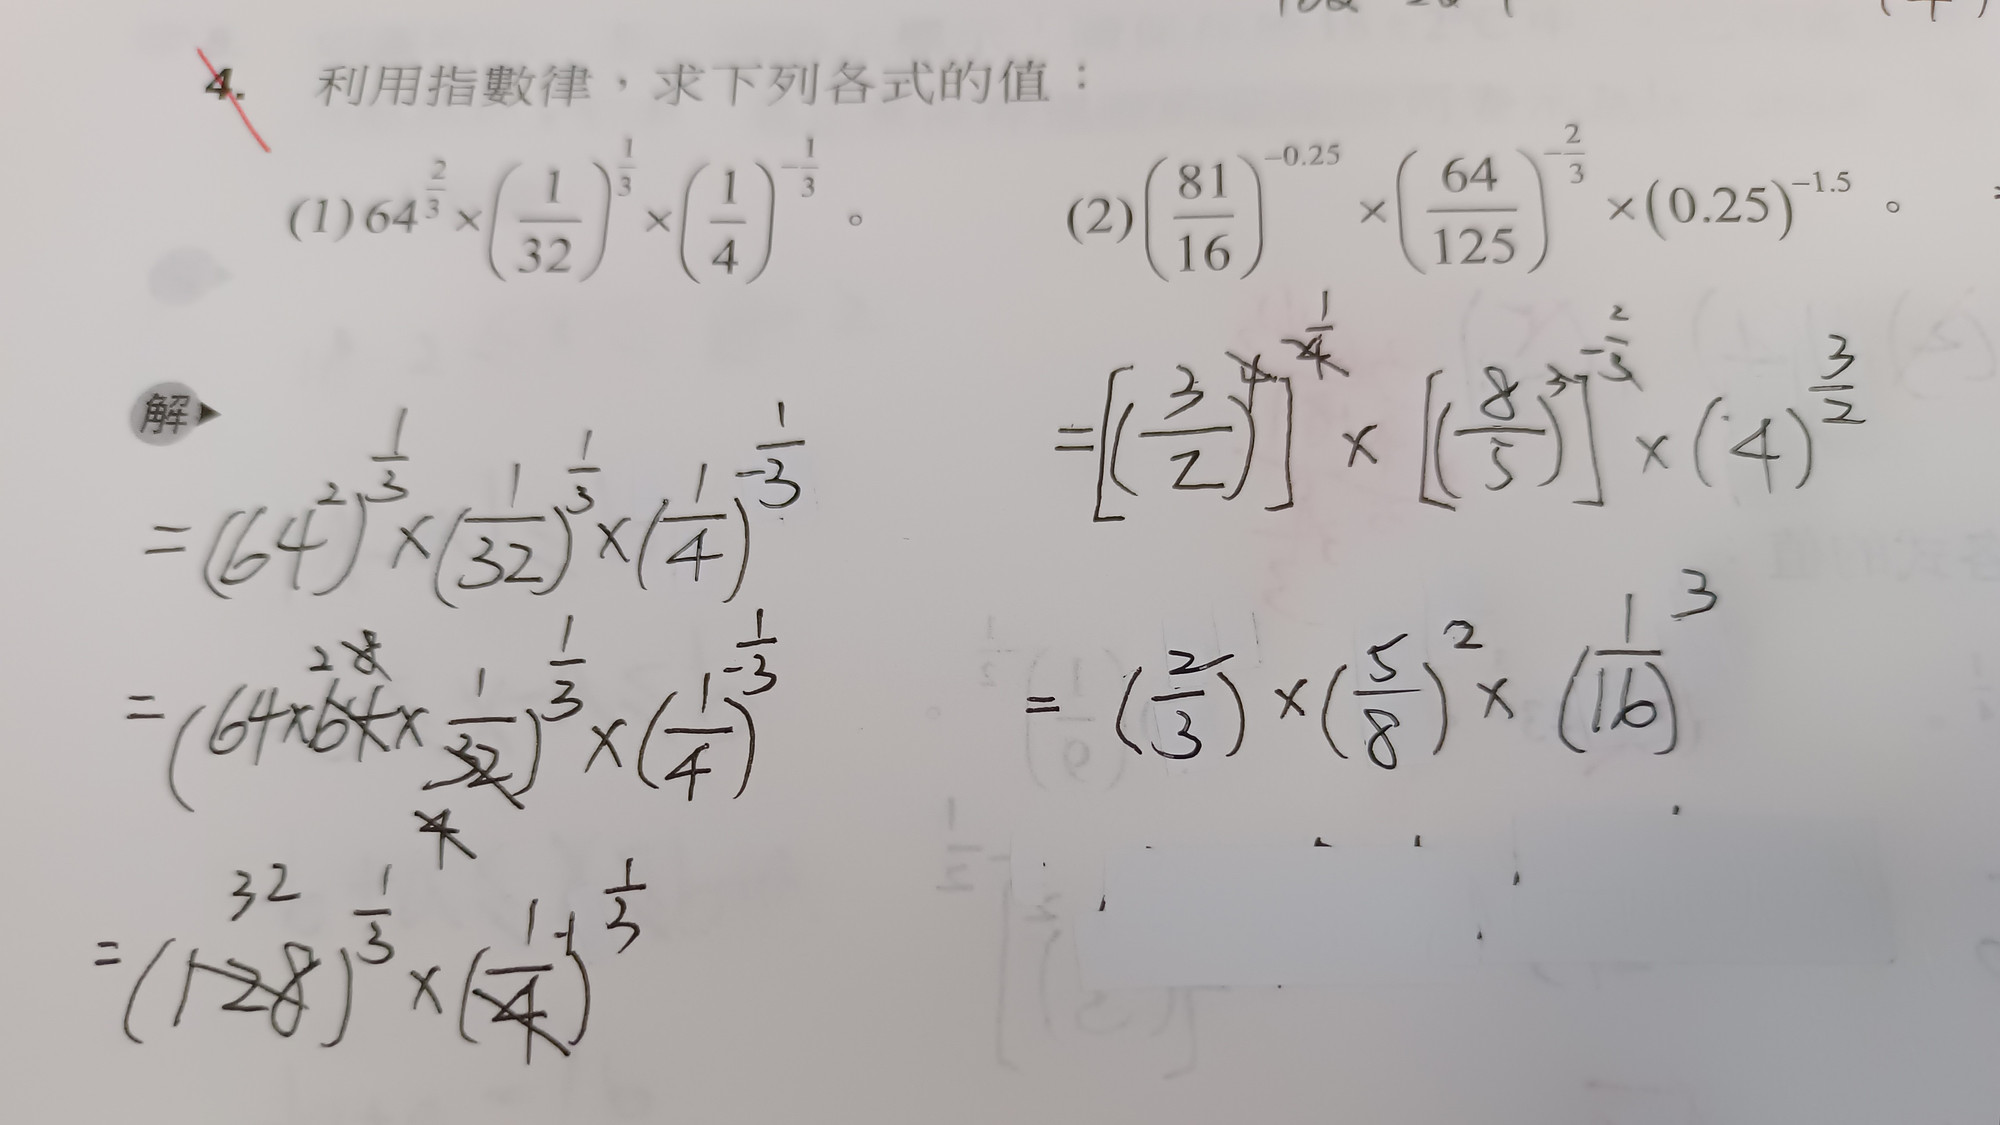 4. 利用指數律，求下列各式的值：
(1) 64^{\frac{2}{3}} × (\frac{1}{32})^{\frac{1}{3}} × (\frac{1}{4})^{-\frac{1}{3}} 。
(2) (\frac{81}{16})^{-0.25} × (\frac{64}{125})^{-\frac{2}{3}} × (0.25)^{-1.5} 。
解
= (64^2)^{\frac{1}{3}} × (\frac{1}{32})^{\frac{1}{3}} × (\frac{1}{4})^{-\frac{1}{3}}
= (64 × 64 × \frac{1}{32})^{\frac{1}{3}} × (\frac{1}{4})^{-\frac{1}{3}}
2 8
4
32
= (128)^{\frac{1}{3}} × (\frac{1}{4})^{-1 \frac{1}{3}}
= [(\frac{3}{2})^4]^{-\frac{1}{4}} × [(\frac{8}{5})^3]^{-\frac{2}{3}} × (4)^{\frac{3}{2}}
= (\frac{2}{3}) × (\frac{5}{8})^2 × (\frac{1}{16})^3